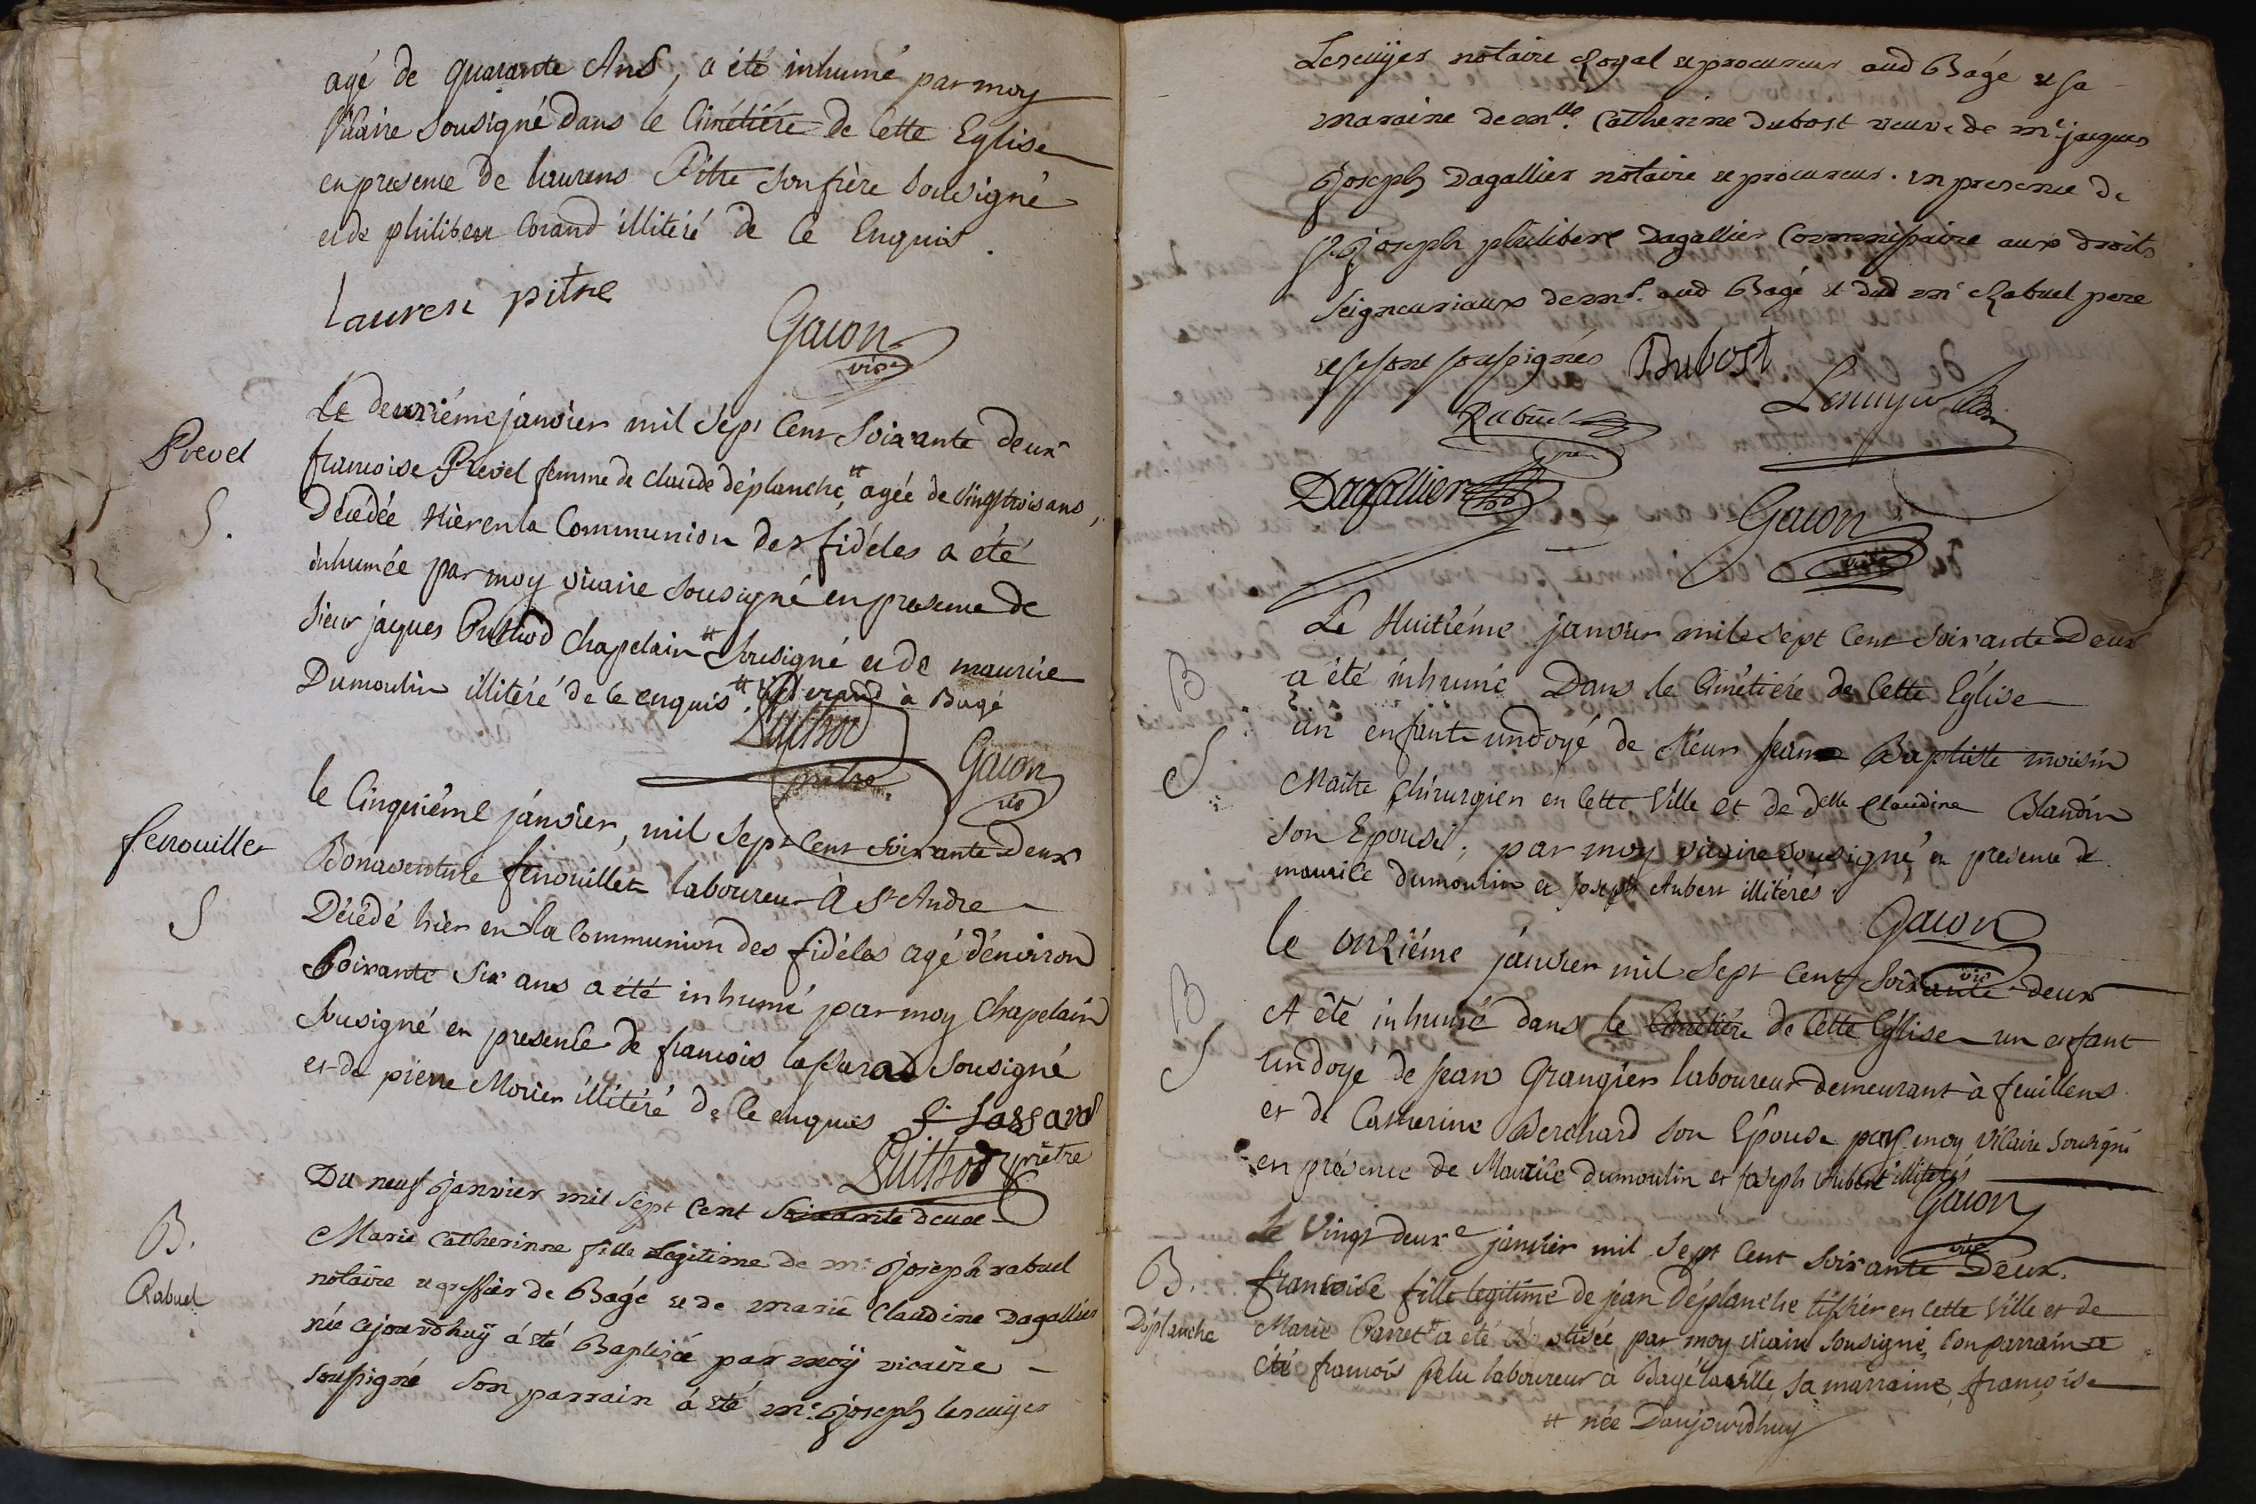 agé de quarante Ans, a été inhumé par moy
Vicaire Sousigné dans le Cimétiére de Cette Eglise
en presence de laurens Pitre Son frère Sousigné
et de philibert Corand illitéré de Ce Enquis.
lauren pitre
Gacon
vic
Prevel
S.
Le deuxiéme janvier mil Sept Cent Soixante deux
francoise Prevel femme de claude déplanche, # agée de vingt trois ans,
Décédée Hier en la Communion des fidéles a été
inhumée par moy vicaire Sousigné en presence de
Sieur jaques Puthod Chapelain # Sousigné et de maurice
Dumoulin illitéré de ce enquis. # Tisserand à Bagé
Puthod
prêtre
Gacon
vic
fenouillet
S
le Cinquiéme jánvier, mil Sept Cent Soixante Deux
Bonaventure fenouillet laboureur à St Andre
Décédé hier en la Communion des fidéles agé d'environ
Soixante Six ans a été inhumé par moy Chapelain
Sousigné en presence de francois lassarad Sousigné
et de pierre Morier illitéré de Ce enquis f. Lassarad
Puthod prêtre
B.
Rabuel
Du neuf janvier mil sept cent Soixante deux
Marie Catherinne fille Legitime de me joseph rabuel
notaire et greffier de Bagé et de marie Claudine Dagallier
née cejourdhuÿ á été Baptisée par moÿ vicaire
sousigné Son parrain á été me joseph lescuÿer
Lescuÿer notaire Royal et procureur aud Bagé et sa
maraine demlle. Catherine Dubost veuve de me jaques
joseph Dagallier notaire et procureur. en presence de
Sr joseph philibert Dagallier Commissaire aux droits
Seigneuriaux demt. aud Bagé et dud me Rabuel pere
et se sont sousignés Dubost
Rabuel
Lescuyer
Dagallier
Gacon
vic
B
S
Le Huitiéme janvier mil sept Cent Soixante Deux
a été inhumé Dans le Cimétiére de Cette Eglise
un enfant undoyé de Sieur Jean Baptiste moisin
Maitre Chirurgien en Cette Ville et de delle Claudine Blandin
Son Epouse, par moy vicaire sousigné, en presence de
maurice dumoulin et joseph Aubert illitérés
Gacon
vic
B
S
le onziéme jánvier mil Sept Cent Soixante deux
A été inhumé dans le Cimetiére de Cette Eglise un enfant
undoyé de Jean Grangier laboureur demeurant à feuillens
et de Catherine Berchard son Epouse par moy vicaire Sousigné
en présence de Maurice dumoulin et joseph Aubert illiterés
Gacon
vic
B.
Déplanche
Le Vingt deuxe janvier mil Sept Cent Soixante Deux.
francoise fille legitime de jean Déplanche tissier en Cette Ville et de
Marie Carret # a été baptisée par moy vicaire Sousigné, Son parrain a
été francois pelu laboureur a Bagé la ville, sa marraine françoise
# née Daujourdhuy